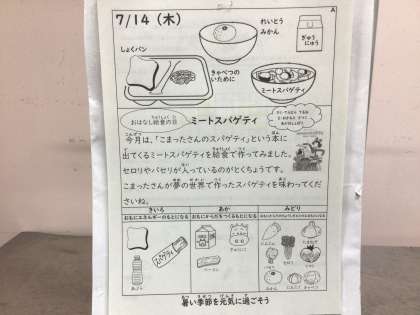 7/14（木）
A
れいとう
みかん
ぎゅう
にゅう
しょくパン
きゃべつの
いために
ミートスパゲティ
おはなし給食の日
ミートスパゲティ
今月は、「こまったさんのスパゲティ」という本に
出てくるミートスパゲティを給食で作ってみました。
セロリやパセリが入っているのがとくちょうです。
こまったさんが夢の世界で作ったスパゲティを味わってくだ
さいね。
きいろ
あか
みどり
おもにエネルギーのもとになる
おもにからだをつくるもとになる
スパゲティ
ぎゅうにく
にんじん
たまねぎ
みかん
にんにく
キャベツ
暑い季節を元気に過ごそう